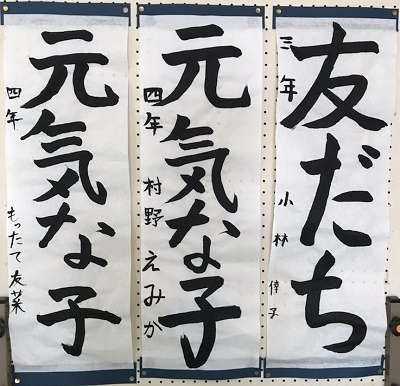 友だち
三年 小林 倖子
元気な子
四年 村野 えみか
元気な子
四年 もったて友菜